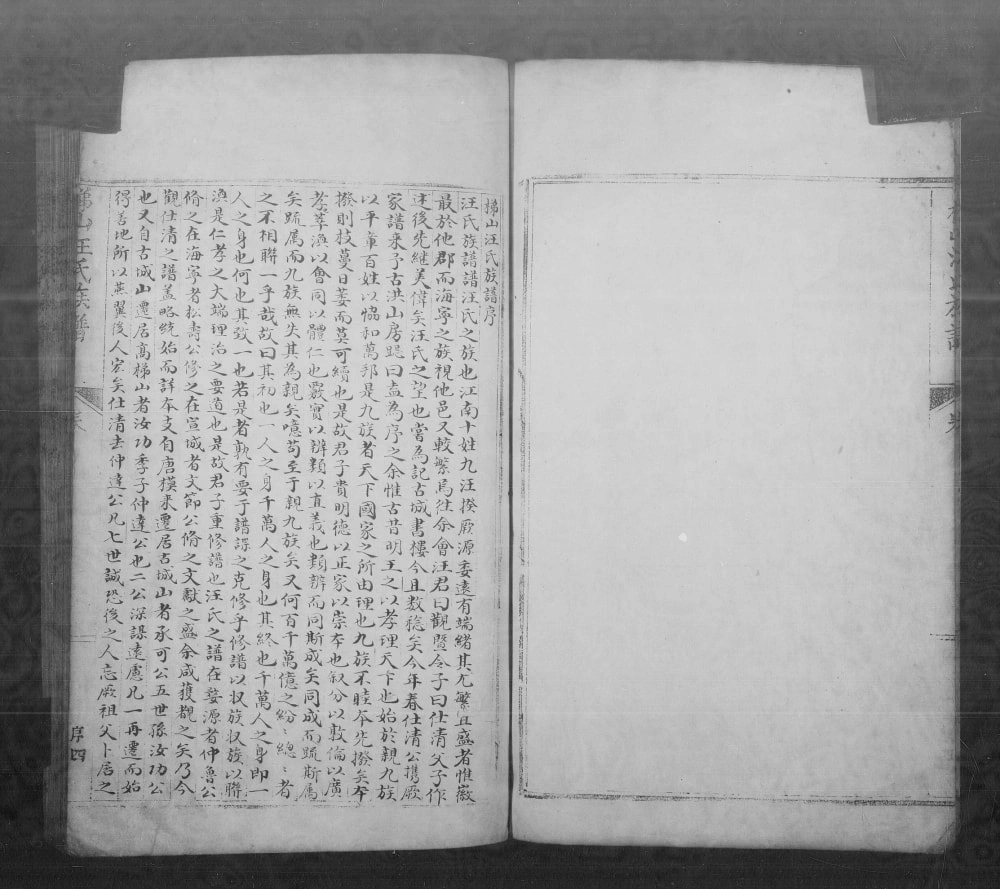 梯山汪氏族譜序
汪氏族譜譜汪氏之族也江南十姓九汪揆厥源委遠有端緒其尤繁且盛者惟徽
最於他郡而海寧之族視他邑又較繁焉徃余會汪君曰觀暨令子曰仕清父子作
述後先継美偉矣汪氏之望也嘗為記古城書樓今且数稔矣今年春仕清公携厥
家譜来予古洪山房跽曰盍為序之余惟古昔明王之以孝理天下也始於親九族
以平章百姓以恊和萬邦是九族者天下國家之所由理也九族不睦夲先撥矣夲
撥則枝蔓日萎而莫可續也是故君子貴明德以正家以崇夲也叙分以敦倫以廣
孝萃渙以會同以體仁也覈實以辨類以直義也類辨而同斯成矣同成而踈斯属
矣踈属而九族無失其為親矣噫苟至于親九族矣又何百千萬億之紛〻緫〻者
之不相聯一乎哉故曰其初也一人之身千萬人之身也其終也千萬人之身即一
人之身也何也其致一也若是者孰有要于譜諜之克修乎修譜以収族収族以聯
渙是仁孝之大端理治之要道也是故君子重修譜也汪氏之譜在婺源者仲魯公
脩之在海寧者松壽公修之在宣城者文節公脩之文獻之盛余咸獲覩之矣乃今
觀仕清之譜盖略統始而詳夲支自唐模来遷居古城山者承可公五世孫汝功公
也又自古城山遷居髙梯山者汝功季子仲達公也二公深謀遠慮凢一再遷而始
得善地所以燕翼後人宏矣仕清去仲達公凢七世誠恐後之人忘厥祖父卜居之
梯山汪氏族譜
序四